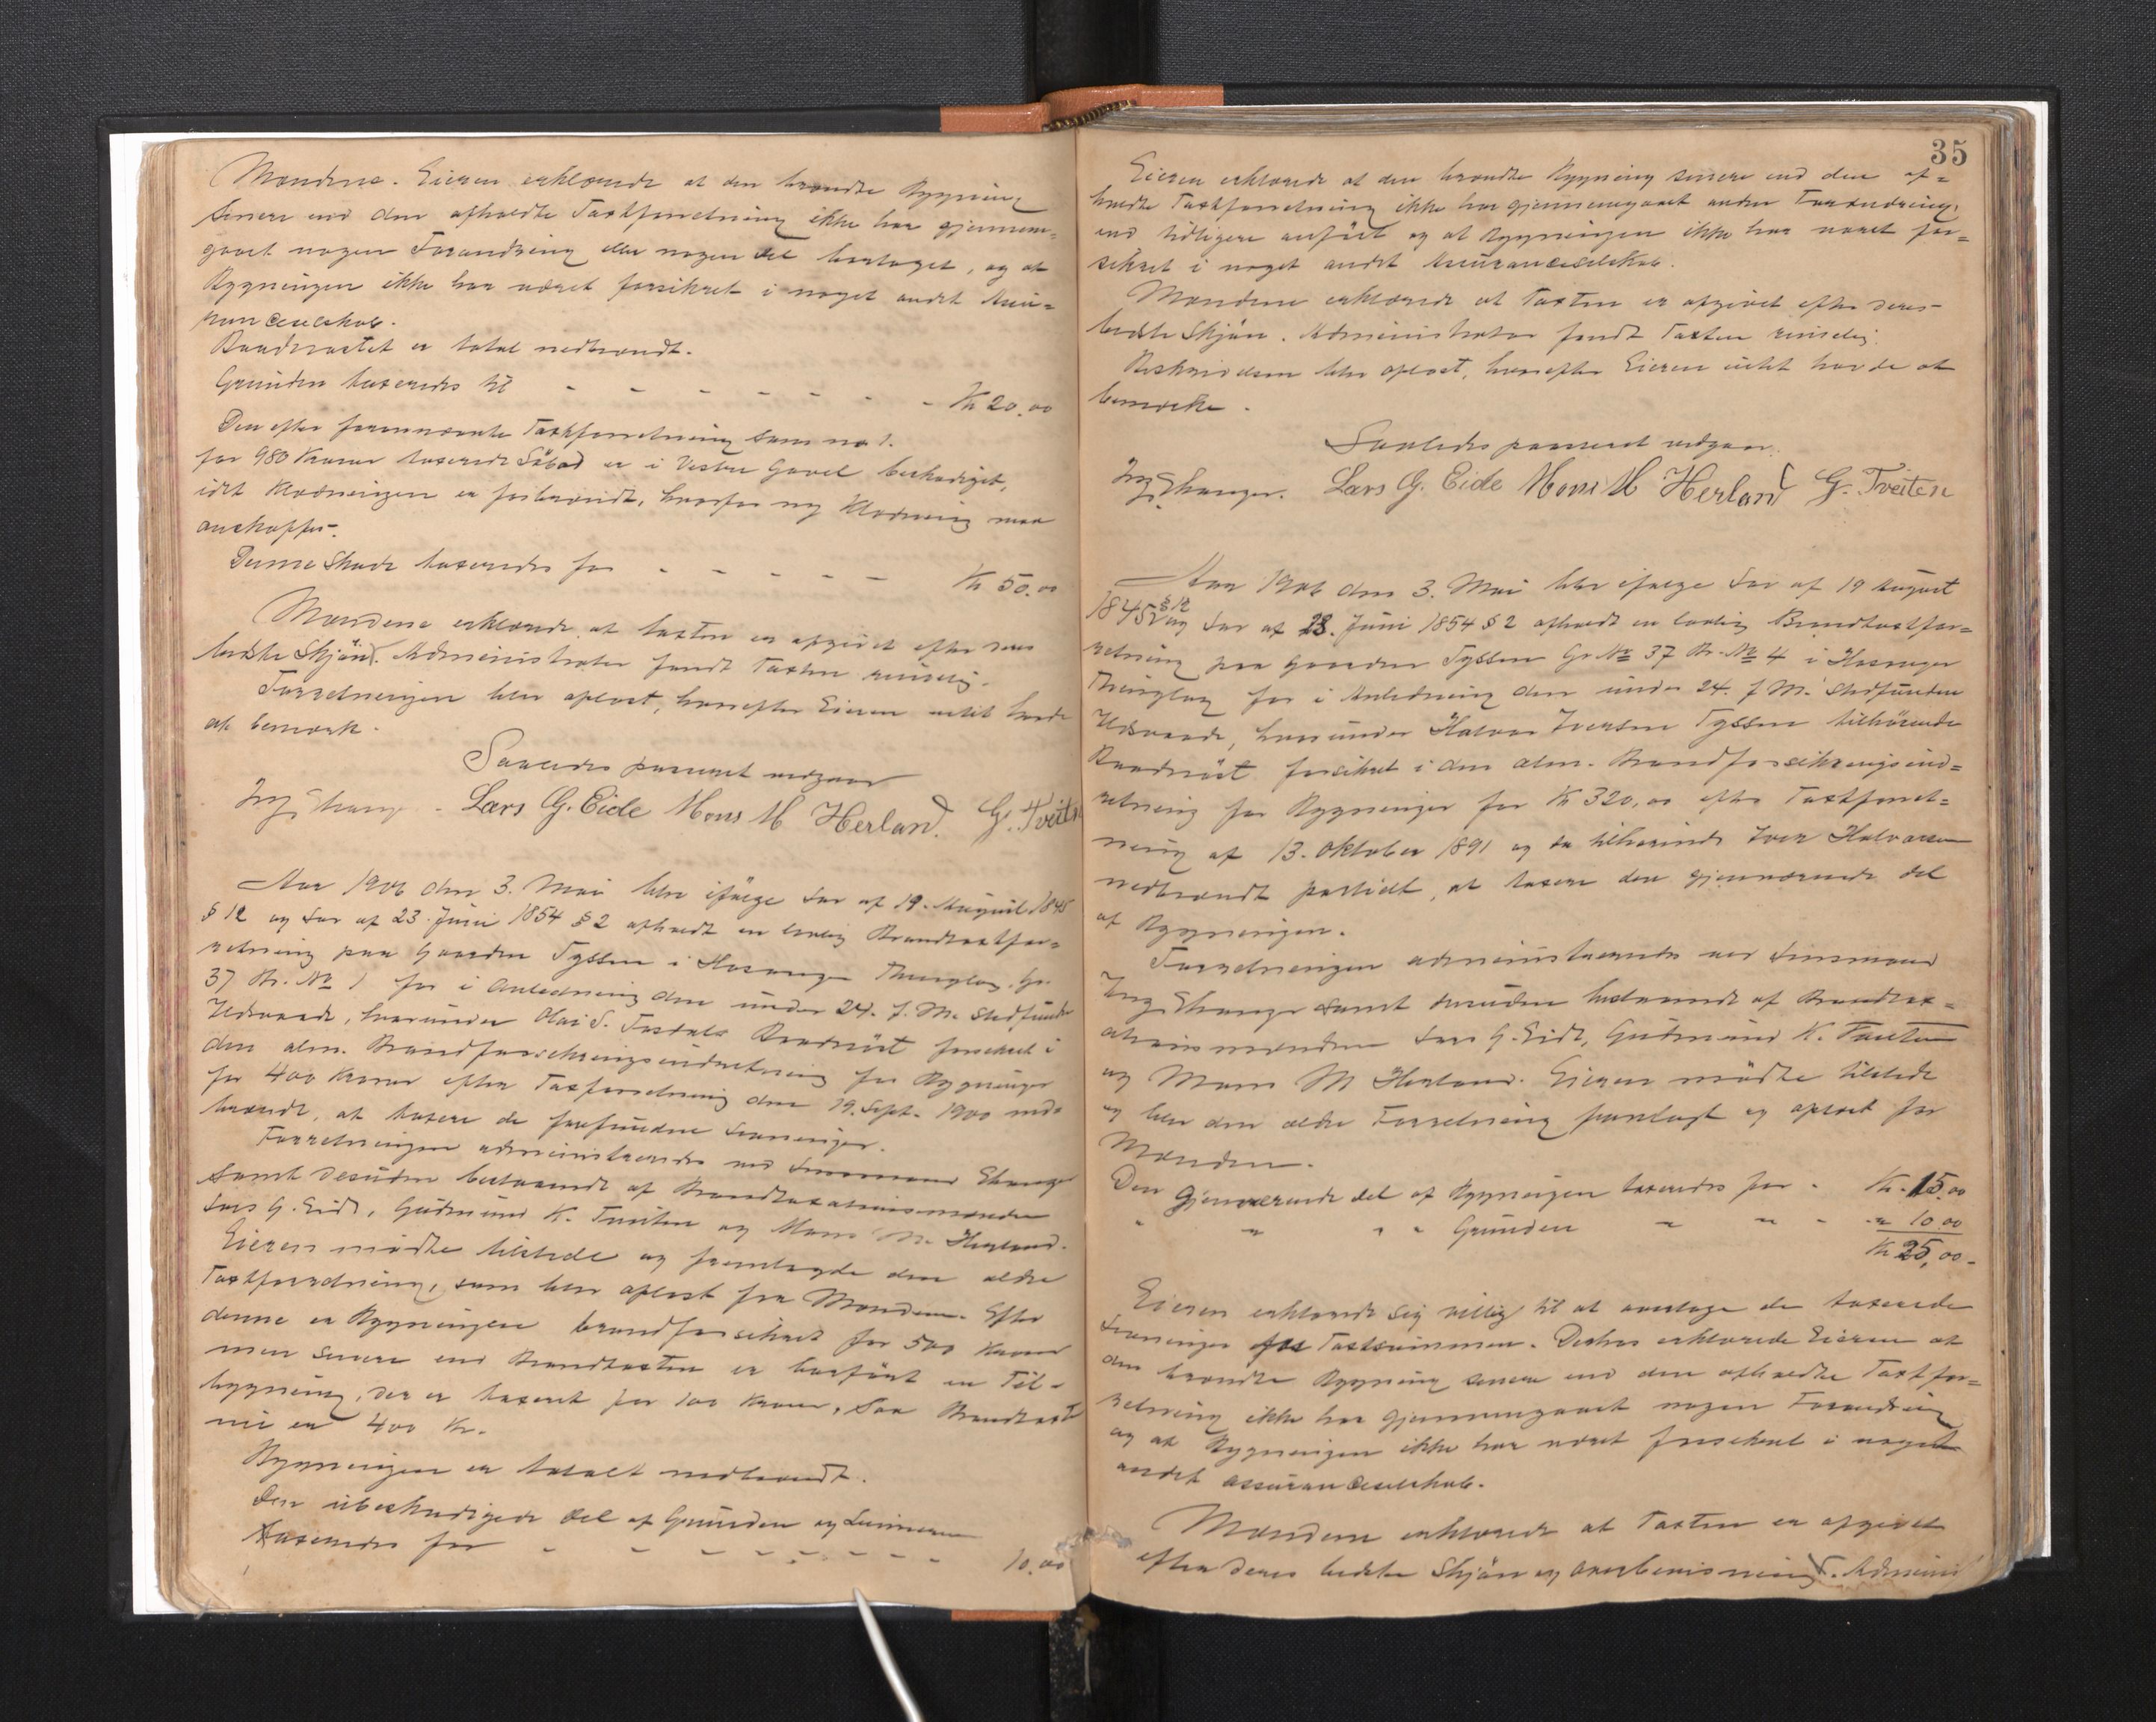 Mændene. Eieren erklærede at den brændte Bygning
senere end den afholdte Taxtforretning ikke har gjennem-
gaaet nogen Forandring eller nogen Del borttaget, og at
Bygningen ikke har været forsikret i noget andet Assu-
ranceselskab.
Baadnøstet er total nedbrændt.
Grunden taxeredes til - - - - - - - Kr 20.00
Den efter forannævnte Taxtforretning som no 1.
for 980 Kroner taxerede Søbod er i Vestre Gavel beskadiget,
idet Klædningen er forbrændt, hvorfor ny Klædning maa
anskaffes.
Denne Skade taxeredes for - - - - - Kr 50.00
Mændene erklærede at taxten er afgivet efter deres
bedste Skjøn. Administrator fandt Taxten rimelig.
Forretningen blev oplæst, hvorefter Eieren intet havde
at bemærke.
Saaledes passeret vedgaar
Lars G. Eide Mons M Herland. G. Tveiten
Aar 1906 den 3. Mai blev ifølge Lov af 19. August 1845
§ 12 og Lov af 23. Juni 1854 § 2 afholdt en lovlig Brandtaxtfor-
retning paa Gaarden Tyssen i Hosanger Thinglag, Gr.
37 Br. № 1 for i Anledning den under 24. f. M. stedfundne
Ildsvaade, hvorunder Olai S. Baadnøst forsikret i
den alm. Brandforsikringsindretning for Bygninger
for 400 Kroner efter Taxtforretning den 19. Sept. 1900 ned-
brændt, at taxere de forefundne Levninger.
Forretningen administreredes ved Lensmand
samt desuden bestaaende af Brandtaxationsmændene
Lars G. Eide, Gudmund K. Tveiten og Mons M. Herland.
Eieren mødte tilstede og fremlagde den ældre
Taxtforretning, som blev oplæst for Mændene. Efter
denne er Bygningen brandforsikret for 500 Kroner
men senere end Brandtaxten er bortført en Til-
bygning, der er taxeret for 100 Kroner, saa Brandtaxt
nu er 400 Kr.
Bygningen er totalt nedbrændt.
Den ubeskadigede Del af Grunden og
taxeredes for - - - - - - - - 10.00
35
Eieren erklærede at den brændte Bygning senere end den af-
holdte Taxtforretning ikke har gjennemgaaet anden Forandring,
end tidligere anført og at Bygningen ikke har været for-
sikret i noget andet Assuranceselskab.
Mændene erklærede at Taxten er afgivet efter deres
bedste Skjøn. Administrator fandt Taxten rimelig.
Beskrivelsen blev oplæst, hvorefter Eieren intet havde at
bemærke.
Saaledes passeret vedgaar.
Lars G. Eide Mons M Herland G. Tveiten
Aar 1906 den 3. Mai blev ifølge Lov af 19 August
1845 § 12 og Lov af 23. Juni 1854 § 2 afholdt en lovlig Brandtaxtfor-
retning paa Gaarden Tyssen Gr № 37 Br. № 4 i Hosanger
Thinglag for i Anledning den under 24. f. M. stedfundne
Ildsvaade, hvorunder Halvor Iversen Tyssen tilhørende
Baadnøst forsikret i den alm. Brandforsikringsind-
retning for Bygninger for Kr 320,00 efter Taxtforret-
ning af 13. Oktober 1891 og da tilhørende Iver Halvorsen
nedbrændt partielt, at taxere den gjenværende Del
af Bygningen.
Forretningen administreredes ved Lensmand
samt desuden bestaaende af Brandtax-
ationsmændene Lars G. Eide, Gudmund K. Tveiten
og Mons M Herland. Eieren mødte tilstede
og blev den ældre Forretning fremlagt og oplæst for
Mændene.
Den gjenværende Del af Bygningen taxeredes for - Kr. 15.00
" " " " Grunden " " - " 10.00
Kr 25,00-
Eieren erklærede sig villig til at overtage de taxerede
Levninger for Taxtsummen. Derhos erklærede Eieren at
den brændte Bygning senere end den afholdte Taxtfor-
retning ikke har gjennemgaaet nogen Forandring
og at Bygningen ikke har været forsikret i noget
andet assuranceselskab.
Mændene erklærede at Taxten er afgivet
efter deres bedste Skjøn og overbevisning. Admini